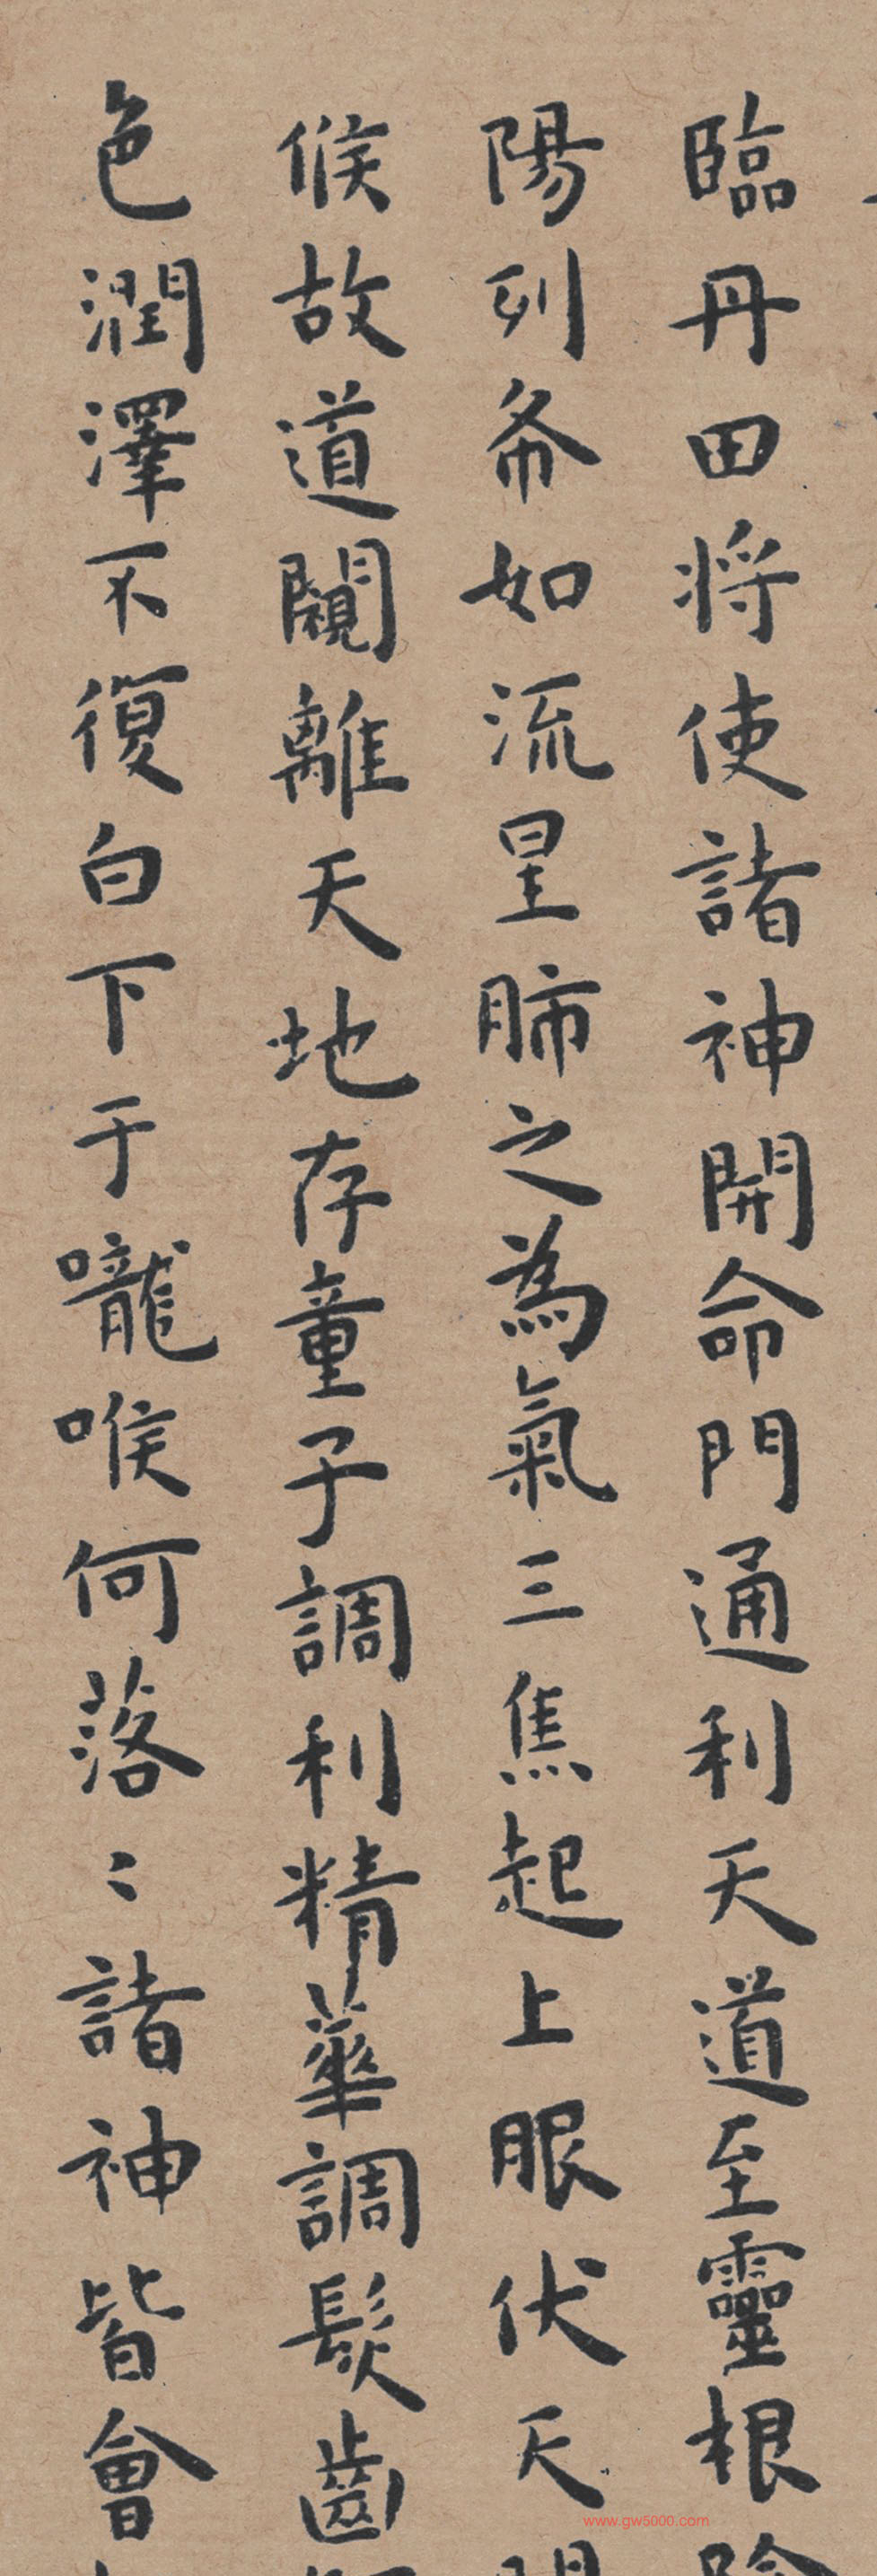 臨丹田將使諸神開命門通利天道至靈根陰
陽列布如流星肺之為氣三焦起上服伏天門
候故道闚離天地存童子調利精華調髮齒
色潤澤不復白下于嚨喉何落〻諸神皆會
www.gw5000.com